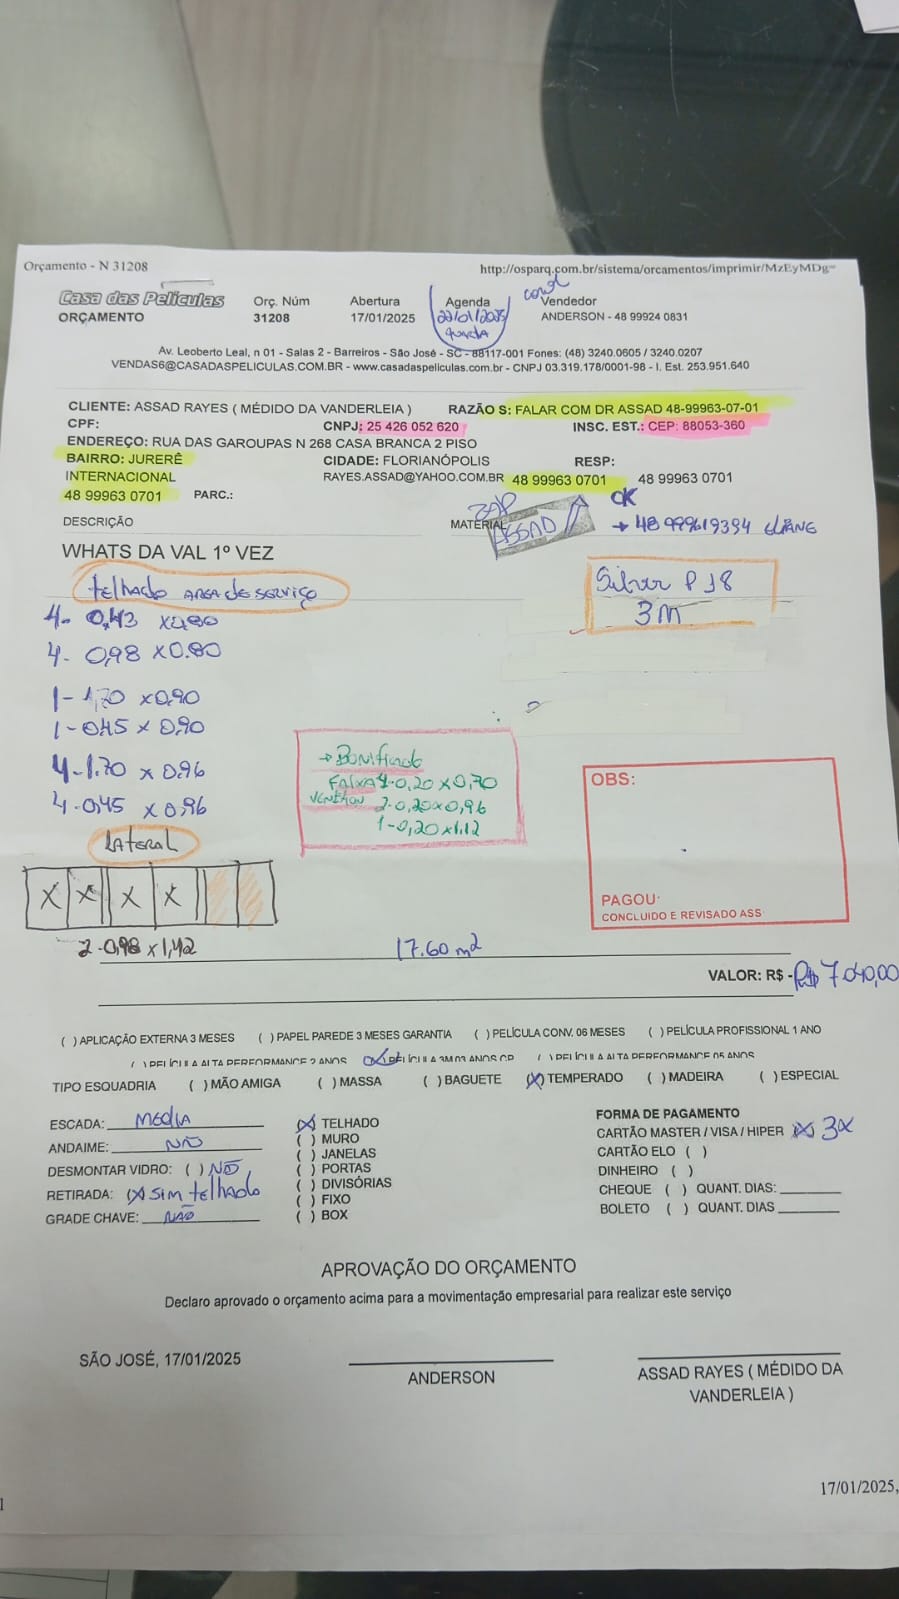 Orçamento - N 31208
http://osparq.com.br/sistema/orcamentos/imprimir/MzEyMDg=
Casa das Películas
ORÇAMENTO
Orç. Núm
31208
Abertura
17/01/2025
Agenda
22/01/2025
Vendedor
ANDERSON - 48 99924 0831
Av. Leoberto Leal, n 01 - Salas 2 - Barreiros - São José - SC - 88117-001 Fones: (48) 3240.0605 / 3240.0207
VENDAS6@CASADASPELICULAS.COM.BR - www.casadaspeliculas.com.br - CNPJ 03.319.178/0001-98 - I. Est. 253.951.640
CLIENTE: ASSAD RAYES ( MÉDIDO DA VANDERLEIA ) RAZÃO S: FALAR COM DR ASSAD 48-99963-07-01
CPF: CNPJ: 25 426 052 620 INSC. EST.: CEP: 88053-360
ENDEREÇO: RUA DAS GAROUPAS N 268 CASA BRANCA 2 PISO
BAIRRO: JURERÊ INTERNACIONAL CIDADE: FLORIANÓPOLIS RESP:
RAYES.ASSAD@YAHOO.COM.BR 48 99963 0701 48 99963 0701
48 99963 0701 PARC.:
ZAP
ASSAD
OK
DESCRIÇÃO MATERIAL
48 999619394 ELIANE
WHATS DA VAL 1º VEZ
telhado AREA de SERVIÇO
Silver P 18
3M
4- 0,43 x 0,80
4- 0,98 x 0.80
1- 1,70 x 0,90
1- 0,45 x 0,90
4- 1.70 x 0,96
4- 0,45 x 0,96
→ Bonificado
FAIXA 4-0,20 x 0,70
2-0,20 x 0,96
1-0,20 x 1.12
OBS:
PAGOU:
CONCLUIDO E REVISADO ASS
LATERAL
X X X X
2-0,98 x 1,42
17.60 m²
VALOR: R$ - R$ 7.040,00
( ) APLICAÇÃO EXTERNA 3 MESES ( ) PAPEL PAREDE 3 MESES GARANTIA ( ) PELÍCULA CONV. 06 MESES ( ) PELÍCULA PROFISSIONAL 1 ANO
( ) PELÍCULA ALTA PERFORMANCE 2 ANOS (X) PELÍCULA 3M 03 ANOS CP ( ) PELÍCULA ALTA PERFORMANCE 05 ANOS
TIPO ESQUADRIA ( ) MÃO AMIGA ( ) MASSA ( ) BAGUETE (X) TEMPERADO ( ) MADEIRA ( ) ESPECIAL
ESCADA: MEDIA
ANDAIME: NÃO
DESMONTAR VIDRO: ( ) NÃO
RETIRADA: (X) SIM telhado
GRADE CHAVE: NÃO
(X) TELHADO
( ) MURO
( ) JANELAS
( ) PORTAS
( ) DIVISÓRIAS
( ) FIXO
( ) BOX
FORMA DE PAGAMENTO
CARTÃO MASTER / VISA / HIPER (X) 3x
CARTÃO ELO ( )
DINHEIRO ( )
CHEQUE ( ) QUANT. DIAS:
BOLETO ( ) QUANT. DIAS
APROVAÇÃO DO ORÇAMENTO
Declaro aprovado o orçamento acima para a movimentação empresarial para realizar este serviço
SÃO JOSÉ, 17/01/2025
ANDERSON
ASSAD RAYES ( MÉDIDO DA VANDERLEIA )
17/01/2025,